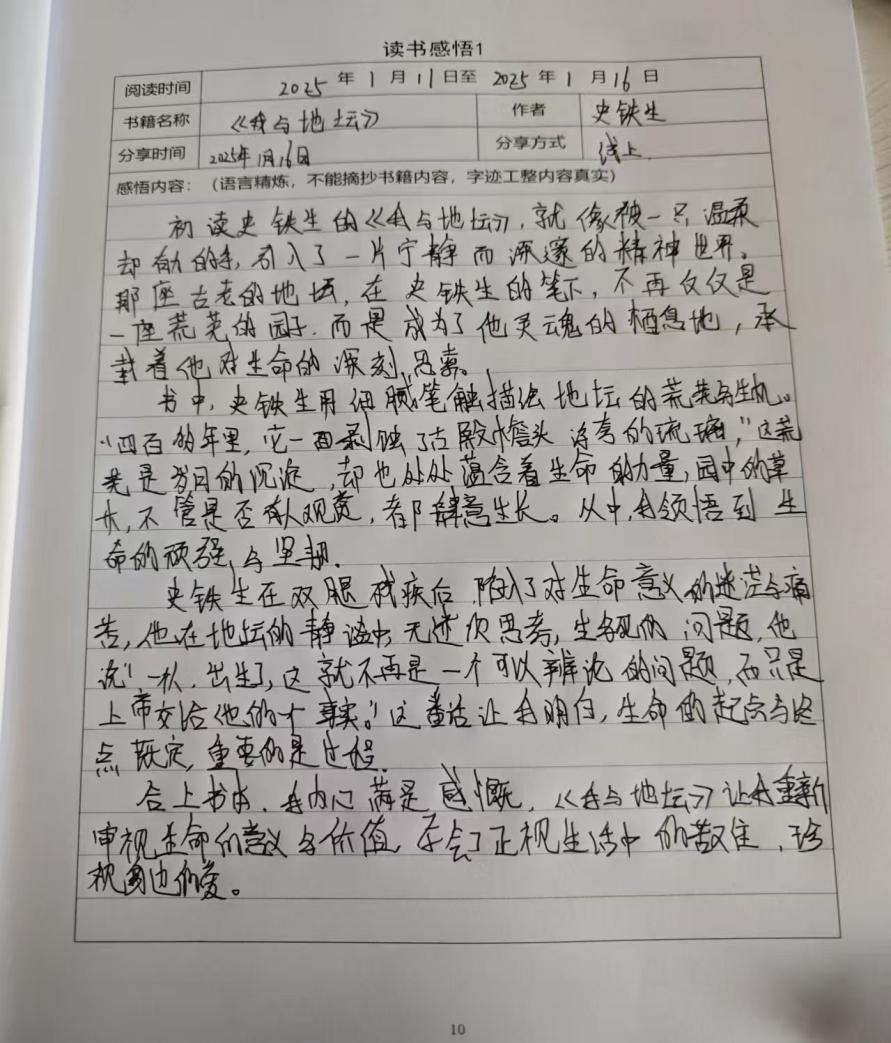 读书感悟1
阅读时间 2025年1月11日至2025年1月16日
书籍名称 《我与地坛》 作者 史铁生
分享时间 2025年1月16日 分享方式 线上.
感悟内容：（语言精炼，不能摘抄书籍内容，字迹工整内容真实）
初读史铁生的《我与地坛》，就像被一只温柔
却有力的手，引入了一片宁静而深邃的精神世界。
那座古老的地坛，在史铁生的笔下，不再仅仅是
一座荒芜的园子.而是成为了他灵魂的栖息地，承
载着他对生命的深刻思索。
书中，史铁生用细腻笔触描绘地坛的荒芜与生机。
“四百的年里，它一面剥蚀了古殿檐头浮夸的琉璃，”这荒
芜是岁月的沉淀，却也处处蕴含着生命的力量，园中的草
木，不管是否有人观赏，都肆意生长。从中，我领悟到生
命的顽强与坚韧.
史铁生在双腿残疾后，陷入了对生命意义的迷茫与痛
苦，他在地坛的静谧中，无述次思考，生死的问题，他
说“一人，出生了，这就不再是一个可以辨论的问题，而只是
上帝交给他的个事实。”这番话让我明白，生命的起点与终
点既定，重要的是过程.
合上书本，我内心满是感慨，《我与地坛》让我重新
审视生命的意义与价值，学会了正视生活中的苦难，珍
视身边的爱。
10